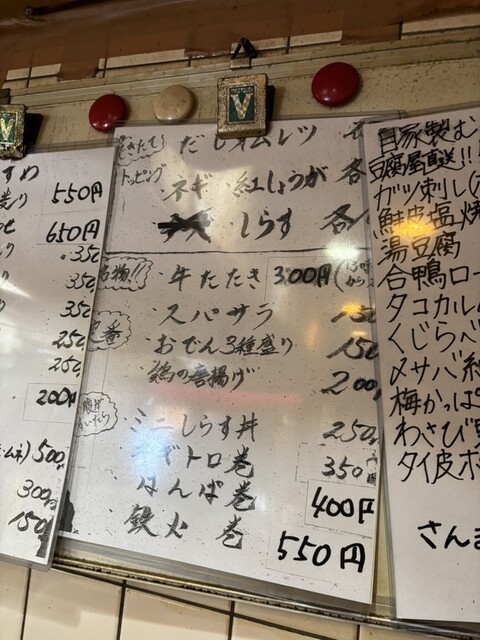 550円
650円
350
350
350
250
250
200円
500
300
150
できたて! だし オムレツ
トッピング
ネギ 紅しょうが 各
しらす 各
名物!! 牛たたき 300円
スパサラ
おでん3種盛り 150
鶏の唐揚げ 200
ミニしらす丼 250
ネギトロ巻 350
はんぱ巻 400円
鉄火巻 550円
自家製む
豆腐屋直送!!
ガツ刺し
鮭皮塩焼
湯豆腐
合鴨ロー
タコカル
くじらべ
〆サバ
梅かっぱ
わさび
タイ皮ポ
さんま